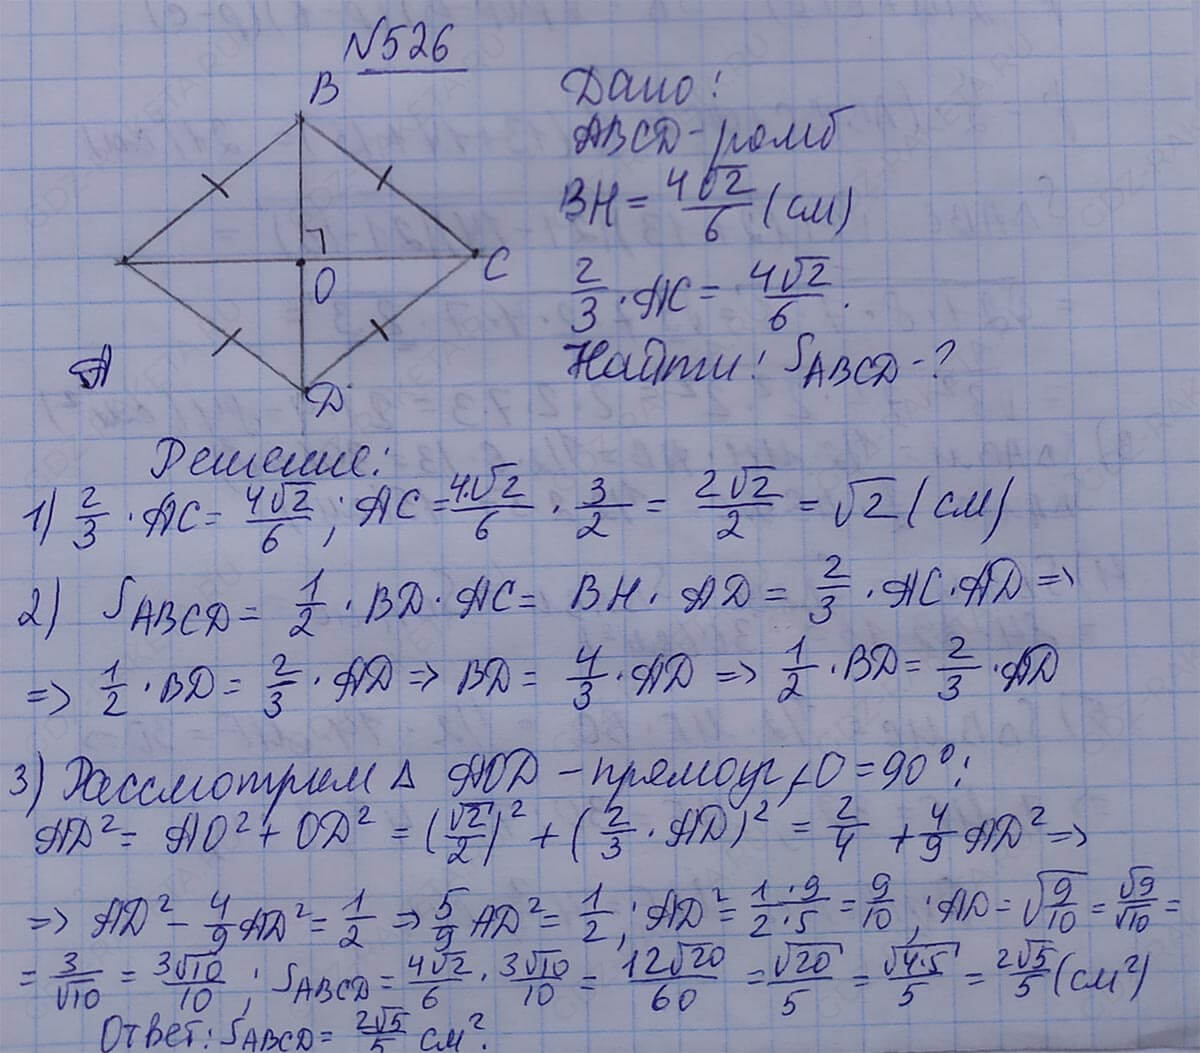 N526
B
C
O
A
D
Дано:
ABCD - ромб
BH = 4√2/6 (см)
2/3 · AC = 4√2/6.
Найти: S ABCD - ?
Решение:
1) 2/3 · AC = 4√2/6 ; AC = 4·√2/6 · 3/2 = 2√2/2 = √2 (см)
2) S ABCD = 1/2 · BD · AC = BH · AD = 2/3 · AC · AD =>
=> 1/2 · BD = 2/3 · AD => BD = 4/3 · AD => 1/2 · BD = 2/3 · AD
3) Рассмотрим Δ AOD - прямоуг, ∠O = 90°;
AD² = AO² + OD² = (√2/2)² + (2/3 · AD)² = 2/4 + 4/9 AD² =>
=> AD² - 4/9 AD² = 1/2 => 5/9 AD² = 1/2 ; AD² = 1·9/2·5 = 9/10 ; AD = √9/10 = √9/√10 =
= 3/√10 = 3√10/10 ; S ABCD = 4√2/6 · 3√10/10 = 12√20/60 = √20/5 = √4·5/5 = 2√5/5 (см²)
Ответ: S ABCD = 2√5/5 см².